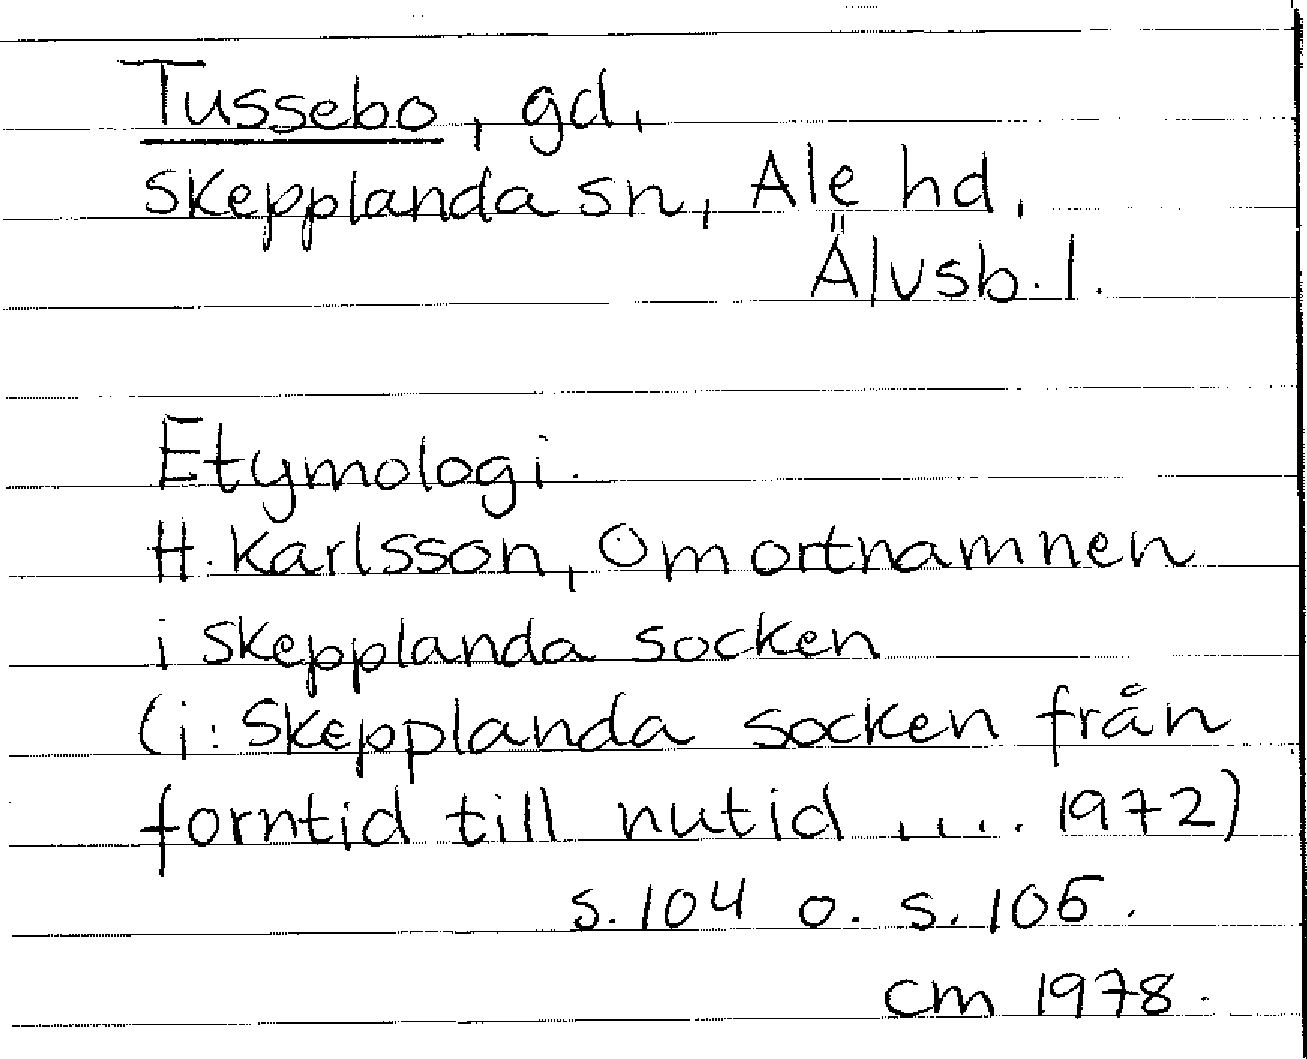 Tussebo, gd,
Skepplanda sn, Ale hd,
Älvsb. l.
Etymologi.
H. Karlsson, Om ortnamnen
i Skepplanda socken
(i: Skepplanda socken från
forntid till nutid .... 1972)
s. 104 o. s. 106.
cm 1978.